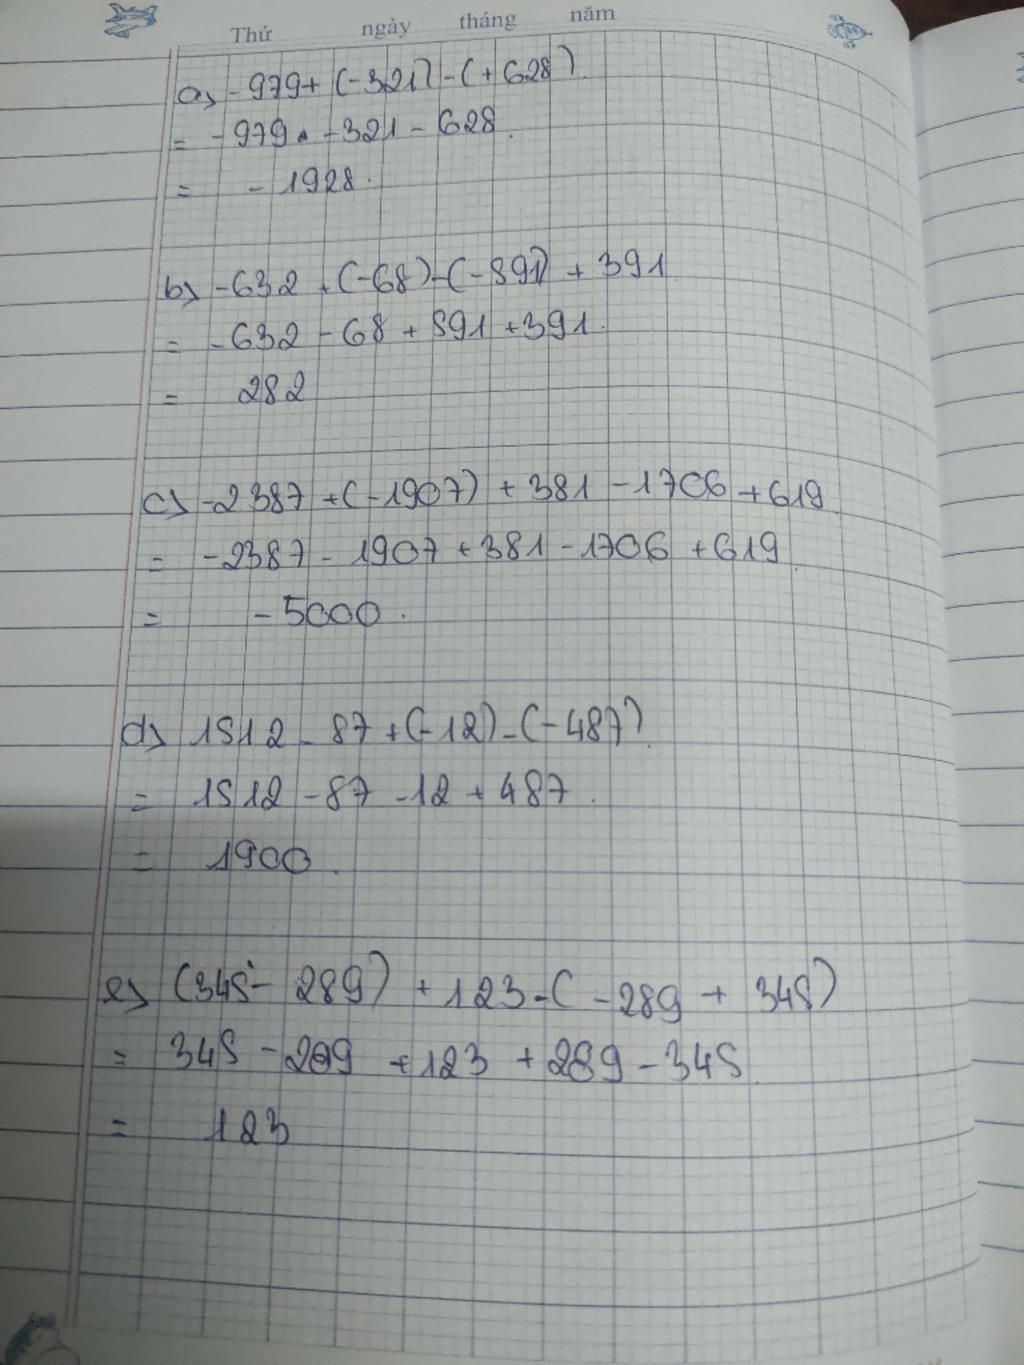 Thứ ngày tháng năm
a) -979+ (-321) -(+628)
= -979 -321 - 628.
= -1928.
b) -632 +(-68)-(-591) + 391
= -632 - 68 + 591 +391.
= 282
c) -2387 +(-1907) + 381 -1706 +619
= -2387 - 1907 +381 -1706 +619
= -5000.
d) 1512 - 87 +(-12)-(-487)
= 1512 -87 -12 + 487.
= 1900.
e) (345 - 289) + 123 -( -289 + 345)
= 345 -289 +123 +289 -345
= 123